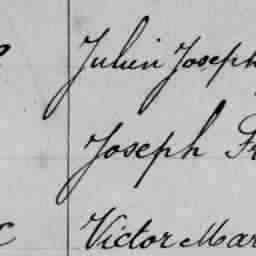 Julien Joseph
Joseph Fr
Victor Mar